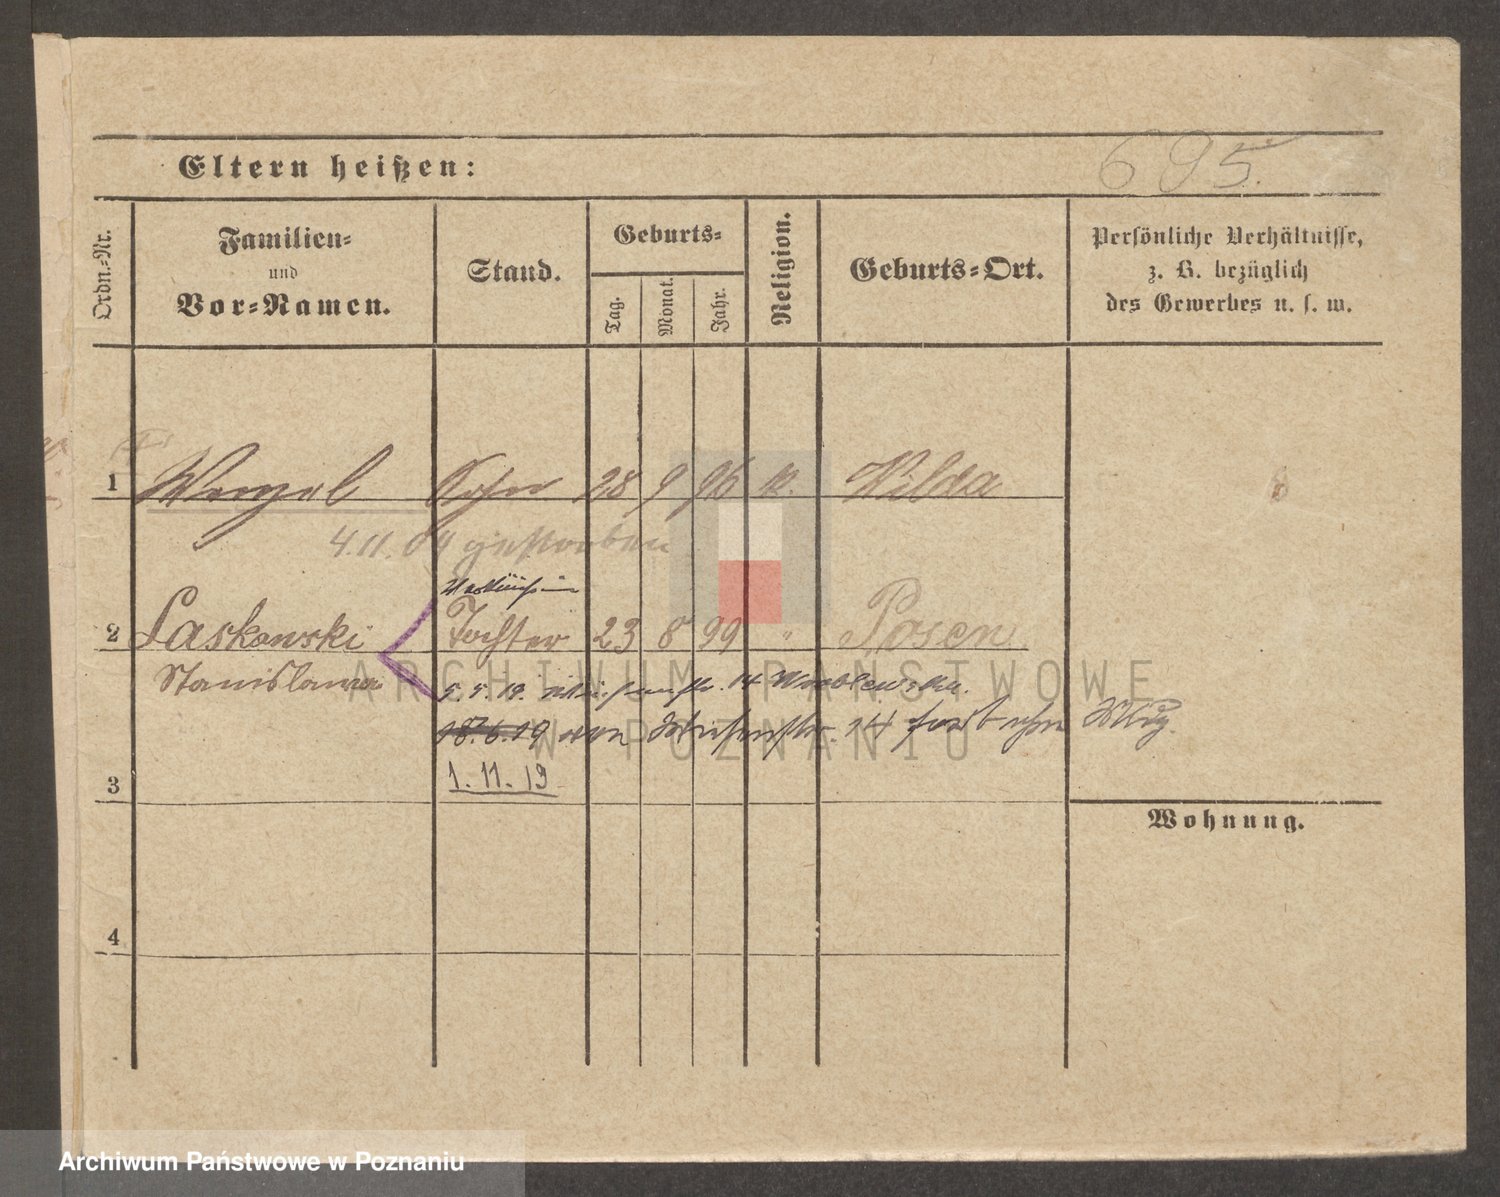 695.
Eltern heißen:
Ordn.-Nr.
Familien-
und
Vor-Namen.
Stand.
Geburts-
Tag.
Monat.
Jahr.
Religion.
Geburts-Ort.
Persönliche Verhältnisse,
z. B. bezüglich
des Gewerbes u. s. w.
1 Sohn 28 9 96 k. Wilda
4.11.04 gestorben
2 Laskowski Tochter 23 8 99 " Posen
Stanislawa
5.5.19. 14
18.6.19 von 14 fort ohne
1.11.19
3
Wohnung.
4
ARCHIWUM PAŃSTWOWE
W POZNANIU
Archiwum Państwowe w Poznaniu